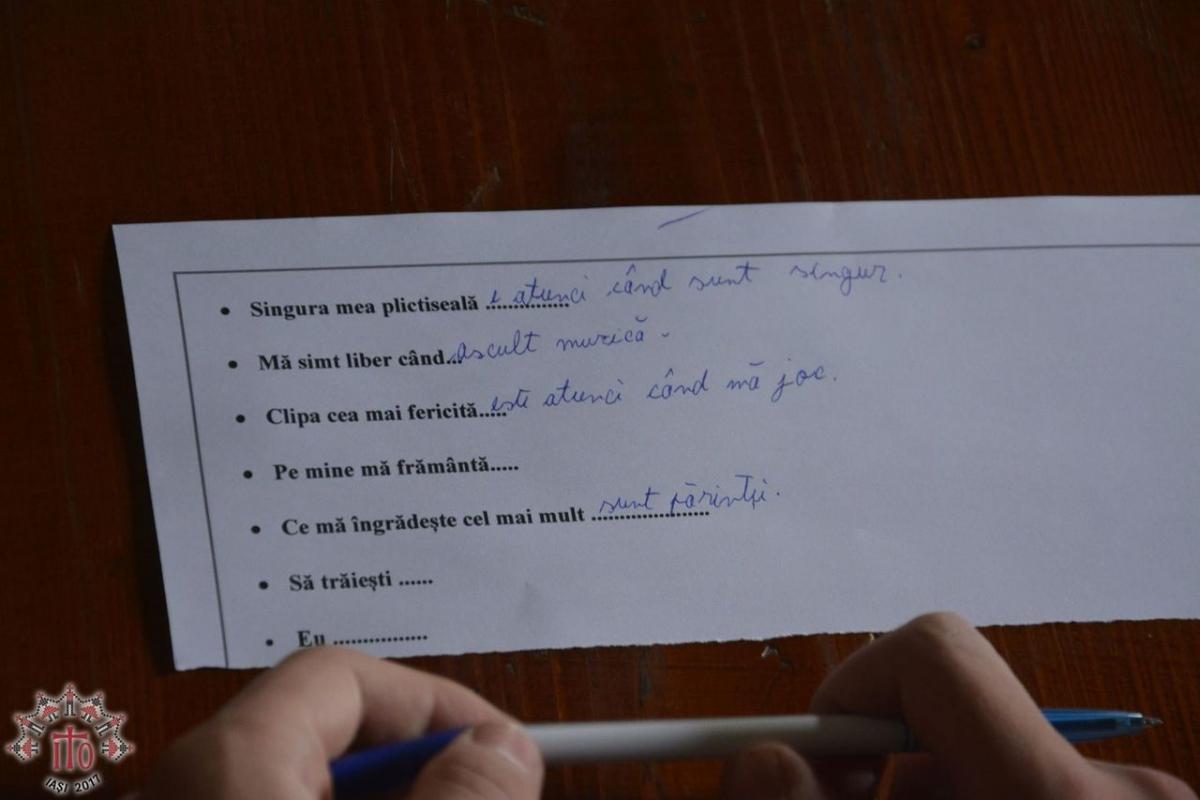 • Singura mea plictiseală ............... e atunci când sunt singur.
• Mă simt liber când... ascult muzică.
• Clipa cea mai fericită..... este atunci când mă joc.
• Pe mine mă frământă.....
• Ce mă îngrădește cel mai mult ..................... sunt părinții.
• Să trăiești ......
• Eu ................
ITO
IAȘI 2017